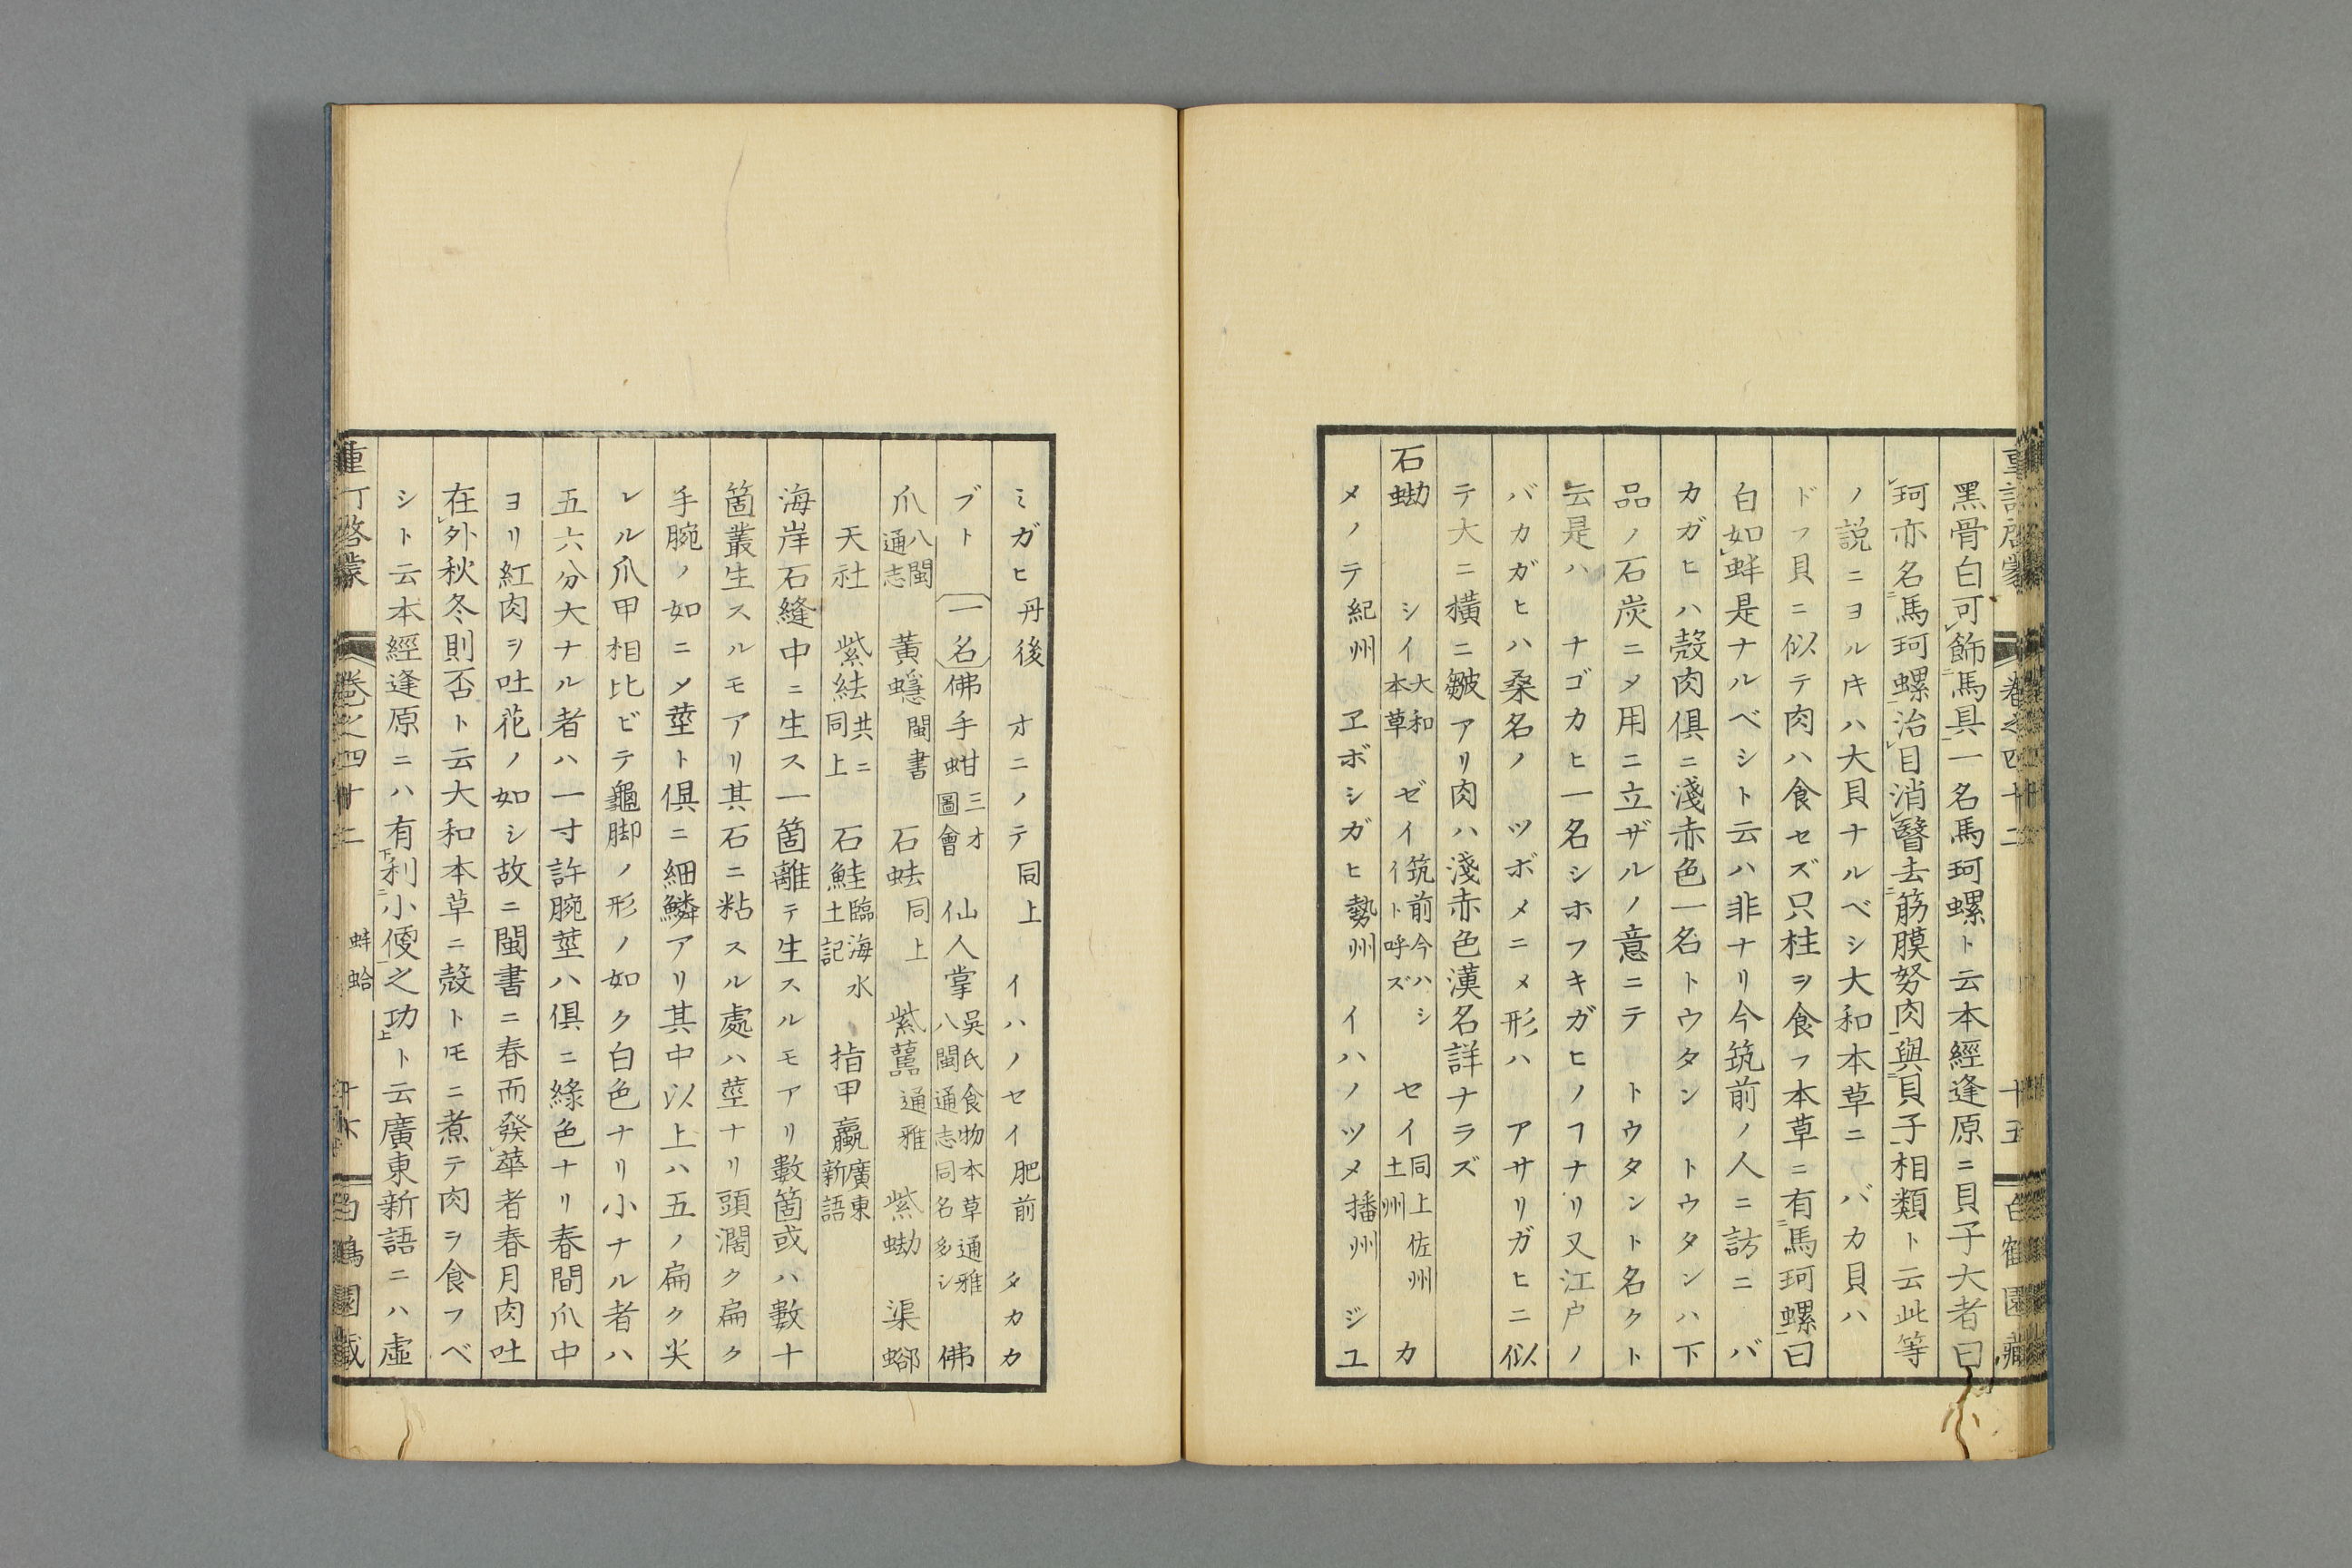 黑骨白可飾馬具一名馬珂螺ト云本經逢原ニ貝子大者曰
珂亦名馬珂螺治目消瞖去筋膜努肉與貝子相類ト云此等
ノ説ニヨルキハ大貝ナルベシ大和本草ニ バカ貝ハ
ドフ貝ニ似テ肉ハ食セズ只柱ヲ食フ本草ニ有馬珂螺曰
白如蚌是ナルベシト云ハ非ナリ今筑前ノ人ニ訪ニ バ
カガヒハ殼肉俱ニ淺赤色一名トウタン トウタンハ下
品ノ石炭ニメ用ニ立ザルノ意ニテ トウタント名クト
云是ハ ナゴカヒ一名シホフキガヒノフナリ又江戸ノ
バカガヒハ桑名ノ ツボメニメ形ハ アサリガヒニ似
テ大ニ横ニ皺アリ肉ハ淺赤色漢名詳ナラズ
石蜐 シイ大和本草 ゼイ筑前今ハシイト呼ズ セイ同上佐州土州 カ
メノテ紀州 ヱボシガヒ勢州 イハノツメ播州 ジユ
重訂啓蒙 卷之四十二 十五 白鶴園藏
ミガヒ丹後 オニノテ同上 イハノセイ肥前 タカカ
ブト 一名佛手蚶三才圖會 仙人掌吳氏食物本草通雅八閩通志同名多シ 佛
爪八閩通志 黃螾閩書 石蜐同上 紫䗩通雅 紫蜐 渠䗘
天社 紫䖻共ニ同上 石鮭臨海水土記 指甲蠃廣東新語
海岸石縫中ニ生ス一箇離テ生スルモアリ數箇或ハ數十
箇叢生スルモアリ其石ニ粘スル處ハ莖ナリ頭濶ク扁ク
手腕ノ如ニメ莖ト俱ニ細鱗アリ其中以上ハ五ノ扁ク尖
レル爪甲相比ビテ龜脚ノ形ノ如ク白色ナリ小ナル者ハ
五六分大ナル者ハ一寸許腕莖ハ俱ニ綠色ナリ春間爪中
ヨリ紅肉ヲ吐花ノ如シ故ニ閩書ニ春而發華者春月肉吐
在外秋冬則否ト云大和本草ニ殼トモニ煮テ肉ヲ食フベ
シト云本經逢原ニハ有下利二小便一之功上ト云廣東新語ニハ虛
重訂啓蒙 卷之四十二 蚌蛤 十六 白鶴園藏